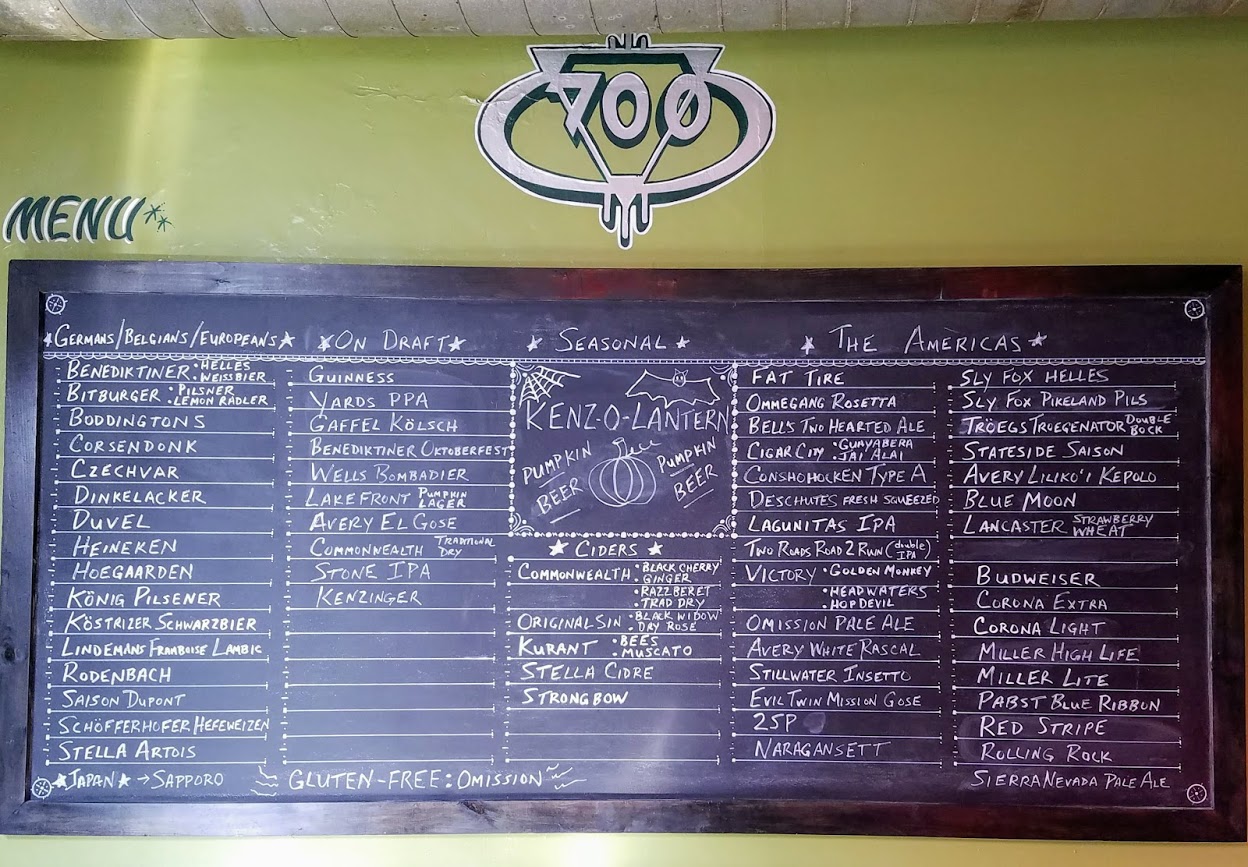 700
MENU
GERMANS/BELGIANS/EUROPEANS
BENEDIKTINER • HELLES
• WEISSBIER
BITBURGER • PILSNER
• LEMON RADLER
BODDINGTONS
CORSENDONK
CZECHVAR
DINKELACKER
DUVEL
HEINEKEN
HOEGAARDEN
KÖNIG PILSENER
KÖSTRIZER SCHWARZBIER
LINDEMANS FRAMBOISE LAMBIC
RODENBACH
SAISON DUPONT
SCHÖFFERHOFER HEFEWEIZEN
STELLA ARTOIS
JAPAN → SAPPORO
ON DRAFT
GUINNESS
YARDS PPA
GAFFEL KÖLSCH
BENEDIKTINER OKTOBERFEST
WELLS BOMBADIER
LAKEFRONT PUMPKIN
LAGER
AVERY EL GOSE
COMMONWEALTH TRADITIONAL
DRY
STONE IPA
KENZINGER
GLUTEN-FREE: OMISSION
SEASONAL
KENZ-O-LANTERN
PUMPKIN
BEER
PUMPKIN
BEER
CIDERS
COMMONWEALTH • BLACK CHERRY
• GINGER
• RAZZBERET
• TRAD DRY
ORIGINAL SIN • BLACK WIDOW
• DRY ROSÉ
KURANT • BEES
• MUSCATO
STELLA CIDRE
STRONGBOW
THE AMERICAS
FAT TIRE
OMMEGANG ROSETTA
BELL'S TWO HEARTED ALE
CIGAR CITY • GUAYABERA
• JAI ALAI
CONSHOHOCKEN TYPE A
DESCHUTES FRESH SQUEEZED
LAGUNITAS IPA
TWO ROADS ROAD 2 RUIN (double)
IPA
VICTORY • GOLDEN MONKEY
• HEADWATERS
• HOP DEVIL
OMISSION PALE ALE
AVERY WHITE RASCAL
STILLWATER INSETTO
EVIL TWIN MISSION GOSE
25P
NARAGANSETT
SLY FOX HELLES
SLY FOX PIKELAND PILS
TRÖEGS TROEGENATOR DOUBLE
BOCK
STATESIDE SAISON
AVERY LILIKO'I KEPOLO
BLUE MOON
LANCASTER STRAWBERRY
WHEAT
BUDWEISER
CORONA EXTRA
CORONA LIGHT
MILLER HIGH LIFE
MILLER LITE
PABST BLUE RIBBON
RED STRIPE
ROLLING ROCK
SIERRA NEVADA PALE ALE